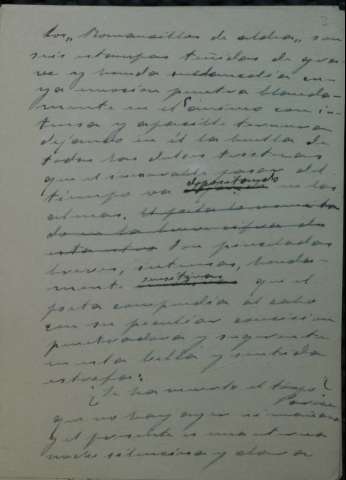 Los "Romancillos de aldea" son
seis estampas teñidas de gra-
ve y honda melancolía cu-
ya emoción penetra blanda-
mente en el ánimo con in-
tensa y apacible ternura
dejando en él la huella de
todas las dulces tristezas
que el inexorable pasar del
tiempo va depositando en las
almas.
Son pinceladas
breves, intensas, honda-
mente que el
poeta compendia al cabo
con su peculiar concisión
penetradora y sugerente
en esta bella y sentida
estrofa:
¿Se ha muerto el tiempo?
que no hay ayer ni mañana
y el presente es una eterna
noche silenciosa y clara